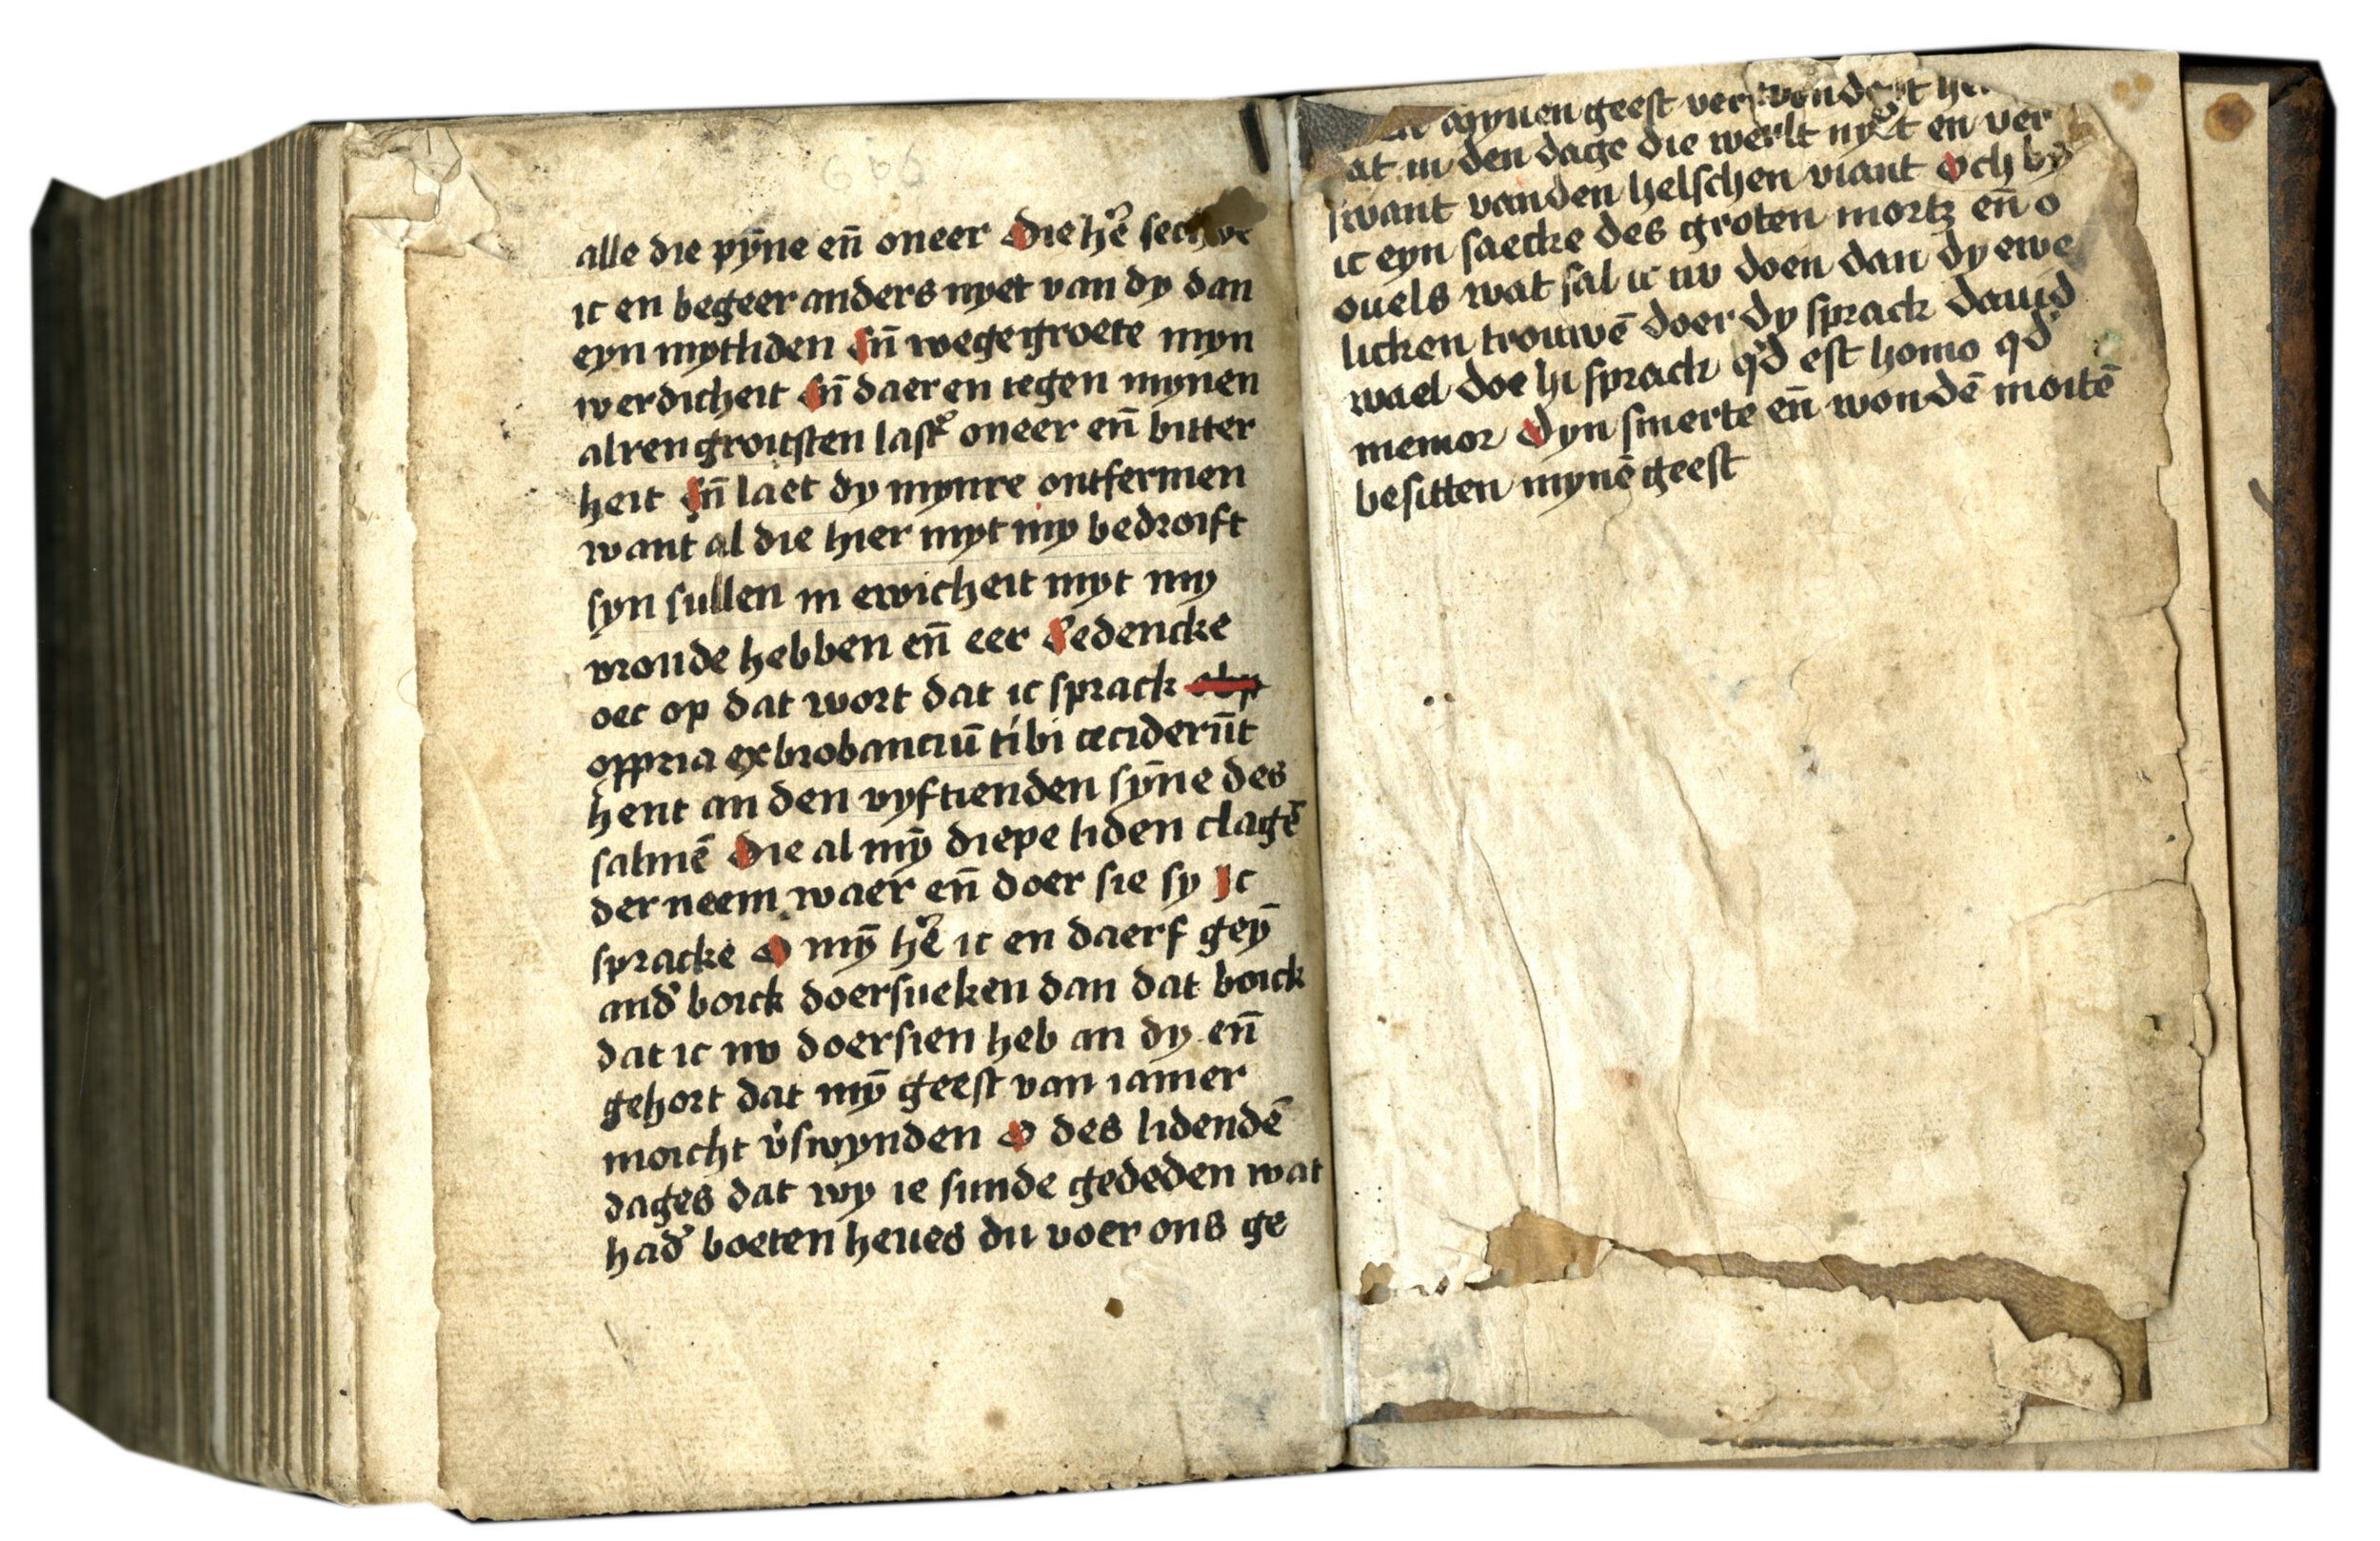 666
alle die pȳne en̄ oneer Die hēr
ic en begeer anders nyet van dy dan
eyn mytliden En̄ wege groete myn
werdicheit En̄ daer en tegen mynen
alren groitsten last oneer en̄ bitter
heit En̄ laet dy mynre ontfermen
want al die hier myt my bedroift
syn sullen in ewicheit myt my
vroude hebben en̄ eer Gedencke
oec op dat wort dat ic sprack obp
oppria exbrobanciū tibi ceciderūt
hent an den vyftienden sȳne des
salmē Die al mȳ diepe liden clagē
der neem waer en̄ doer sie sy Ic
spracke O mȳ hēr ic en daerf geȳ
and' boick doersueken dan dat boick
dat ic nv doersien heb an dy en̄
gehort dat mȳ geest van iamer
moicht v'swynden O des lidendē
dages dat wy ie sunde gededen wat
had' boeten heues du voer ons ge
mynen geest verwondert
at in den dage die werlt en ver
want vanden helschen viant Och by
ic eyn saecke des groten mortz en̄ o
ouels wat sal ic nv doen dan dy ewe
licken trouwē doer dy sprack dauid
wael doe hi sprack qd' est homo qd'
memor Dyn smerte en̄ wondē moitē
besitten mynē geest